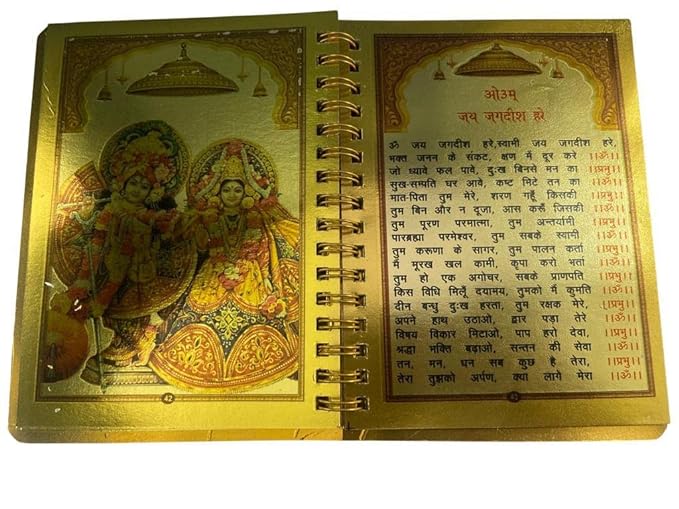 42
ओ३म्
जय जगदीश हरे
ॐ जय जगदीश हरे,स्वामी जय जगदीश हरे,
भक्त जनन के संकट, क्षण में दूर करे ।।ॐ।।
जो ध्यावे फल पावे, दुःख बिनसे मन का ।।प्रभु।।
सुख-सम्पति घर आवे, कष्ट मिटे तन का ।।ॐ।।
मात-पिता तुम मेरे, शरण गहूँ किसकी ।।प्रभु।।
तुम बिन और न दूजा, आस करूँ जिसकी ।।ॐ।।
तुम पूरण परमात्मा, तुम अन्तर्यामी ।।प्रभु।।
पारब्रह्म परमेश्वर, तुम सबके स्वामी ।।ॐ।।
तुम करूणा के सागर, तुम पालन कर्ता ।।प्रभु।।
मैं मूरख खल कामी, कृपा करो भर्ता ।।ॐ।।
तुम हो एक अगोचर, सबके प्राणपति ।।प्रभु।।
किस विधि मिलूँ दयामय, तुमको मैं कुमति ।।ॐ।।
दीन बन्धु दुःख हरता, तुम रक्षक मेरे, ।।प्रभु।।
अपने हाथ उठाओ, द्वार पड़ा तेरे ।।ॐ।।
विषय विकार मिटाओ, पाप हरो देवा, ।।प्रभु।।
श्रद्धा भक्ति बढ़ाओ, सन्तन की सेवा ।।ॐ।।
तन, मन, धन सब कुछ है तेरा, ।।प्रभु।।
तेरा तुझको अर्पण, क्या लागे मेरा ।।ॐ।।
43